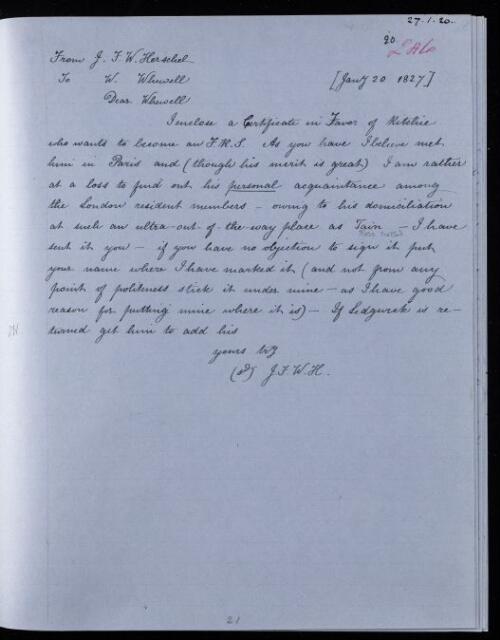 27.1.20.
20
From J. F. W. Herschel
To W. Whewell
[Jany 20 1827]
Dear Whewell
I enclose a Certificate in Favor of Ritchie
who wants to become an F.R.S. As you have I believe met
him in Paris and (though his merit is great) I am rather
at a loss to find out his personal acquaintance among
the London resident members – owing to his domiciliation
at such an ultra-out-of-the-way place as Tain – I have
sent it you – if you have no objection to sign it put
your name where I have marked it (and not from any
point of politeness stick it under mine – as I have good
reason for putting mine where it is) – If Sedgwick is re-
turned get him to add his
yours try
(S) J.F.W.H.
21